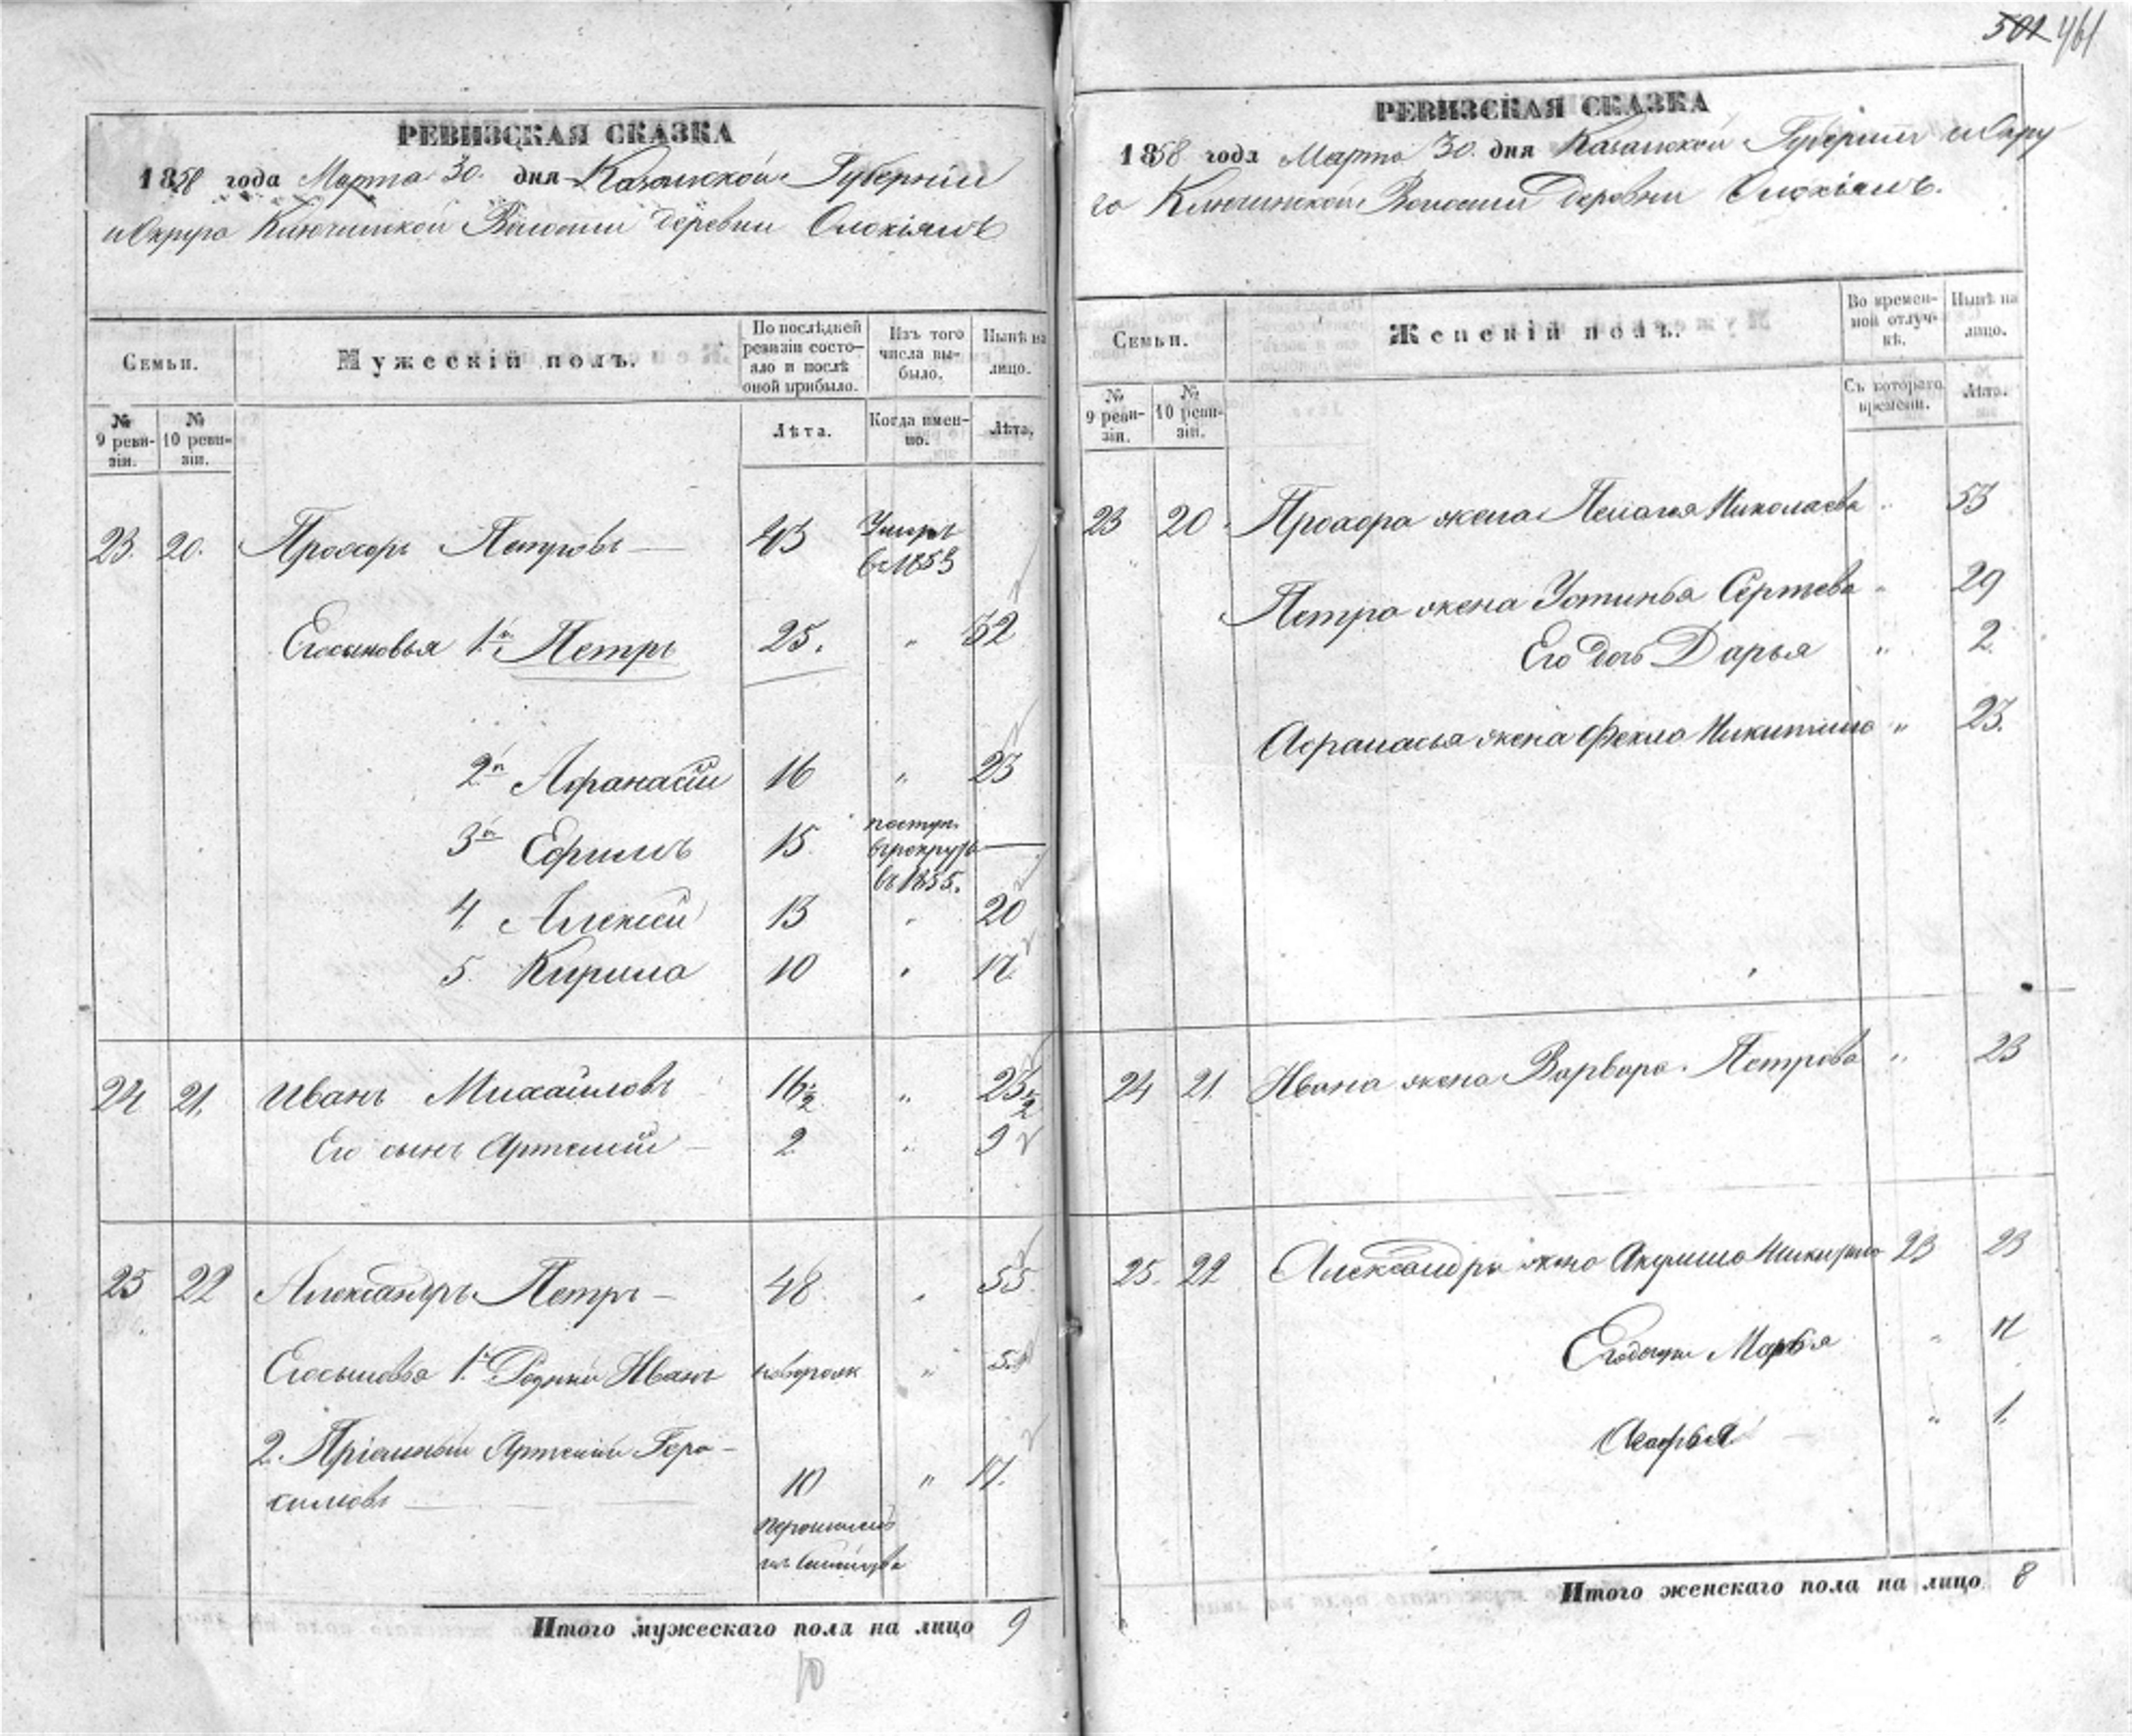 501 461
РЕВИЗСКАЯ СКАЗКА
1858 года Марта 30. дня Казанской Губернии
и Округа Ключинской Волости деревни
Семьи.
Мужескій полъ.
По послѣдней ревизіи состояло и послѣ оной прибыло.
Изъ того числа выбыло.
Нынѣ на лицо.
№ 9 ревизіи.
№ 10 ревизіи.
Лѣта.
Когда именно.
Лѣта.
23. 20. Прохоръ Петровъ — 43 Умеръ въ 1853
Его сыновья 1й Петръ 25. " 32
2й Афанасій 16 " 23
3й Ефимъ 15 поступ. въ рекруты въ 1855. —
4 Алексей 13 " 20
5. Кирила 10 " 17
24 21. Иванъ Михайловъ 16½ " 23½
Его сынъ Артемій — 2 " 9
25 22 Александръ Петръ — 48 " 55
Его сыновья 1й Родной Иванъ новорож " 5
2. Пріемный Артемій Гера-
симовъ — 10 " 17.
Итого мужескаго пола на лицо 9
10
РЕВИЗСКАЯ СКАЗКА
1858 года Марта 30. дня Казанской Губерніи и Окру
го Ключинской Волости Деревни
Семьи.
Женскій полъ.
Во временной отлучкѣ.
Нынѣ на лицо.
№ 9 ревизіи.
№ 10 ревизіи.
Съ котораго времени.
Лѣта.
23 20. Прохора жена Пелагея Николаева " 53
Петра жена Устинья Сергеева " 29
Его дочь Дарья " 2.
Афанасья жена Фекла Никитина " 23.
24 21. Ивана жена Варвара Петрова " 23
25. 22 Александра жена Акулина 23 23
Его дочери Марья " 11
Агафья " 1.
Итого женскаго пола на лицо 8